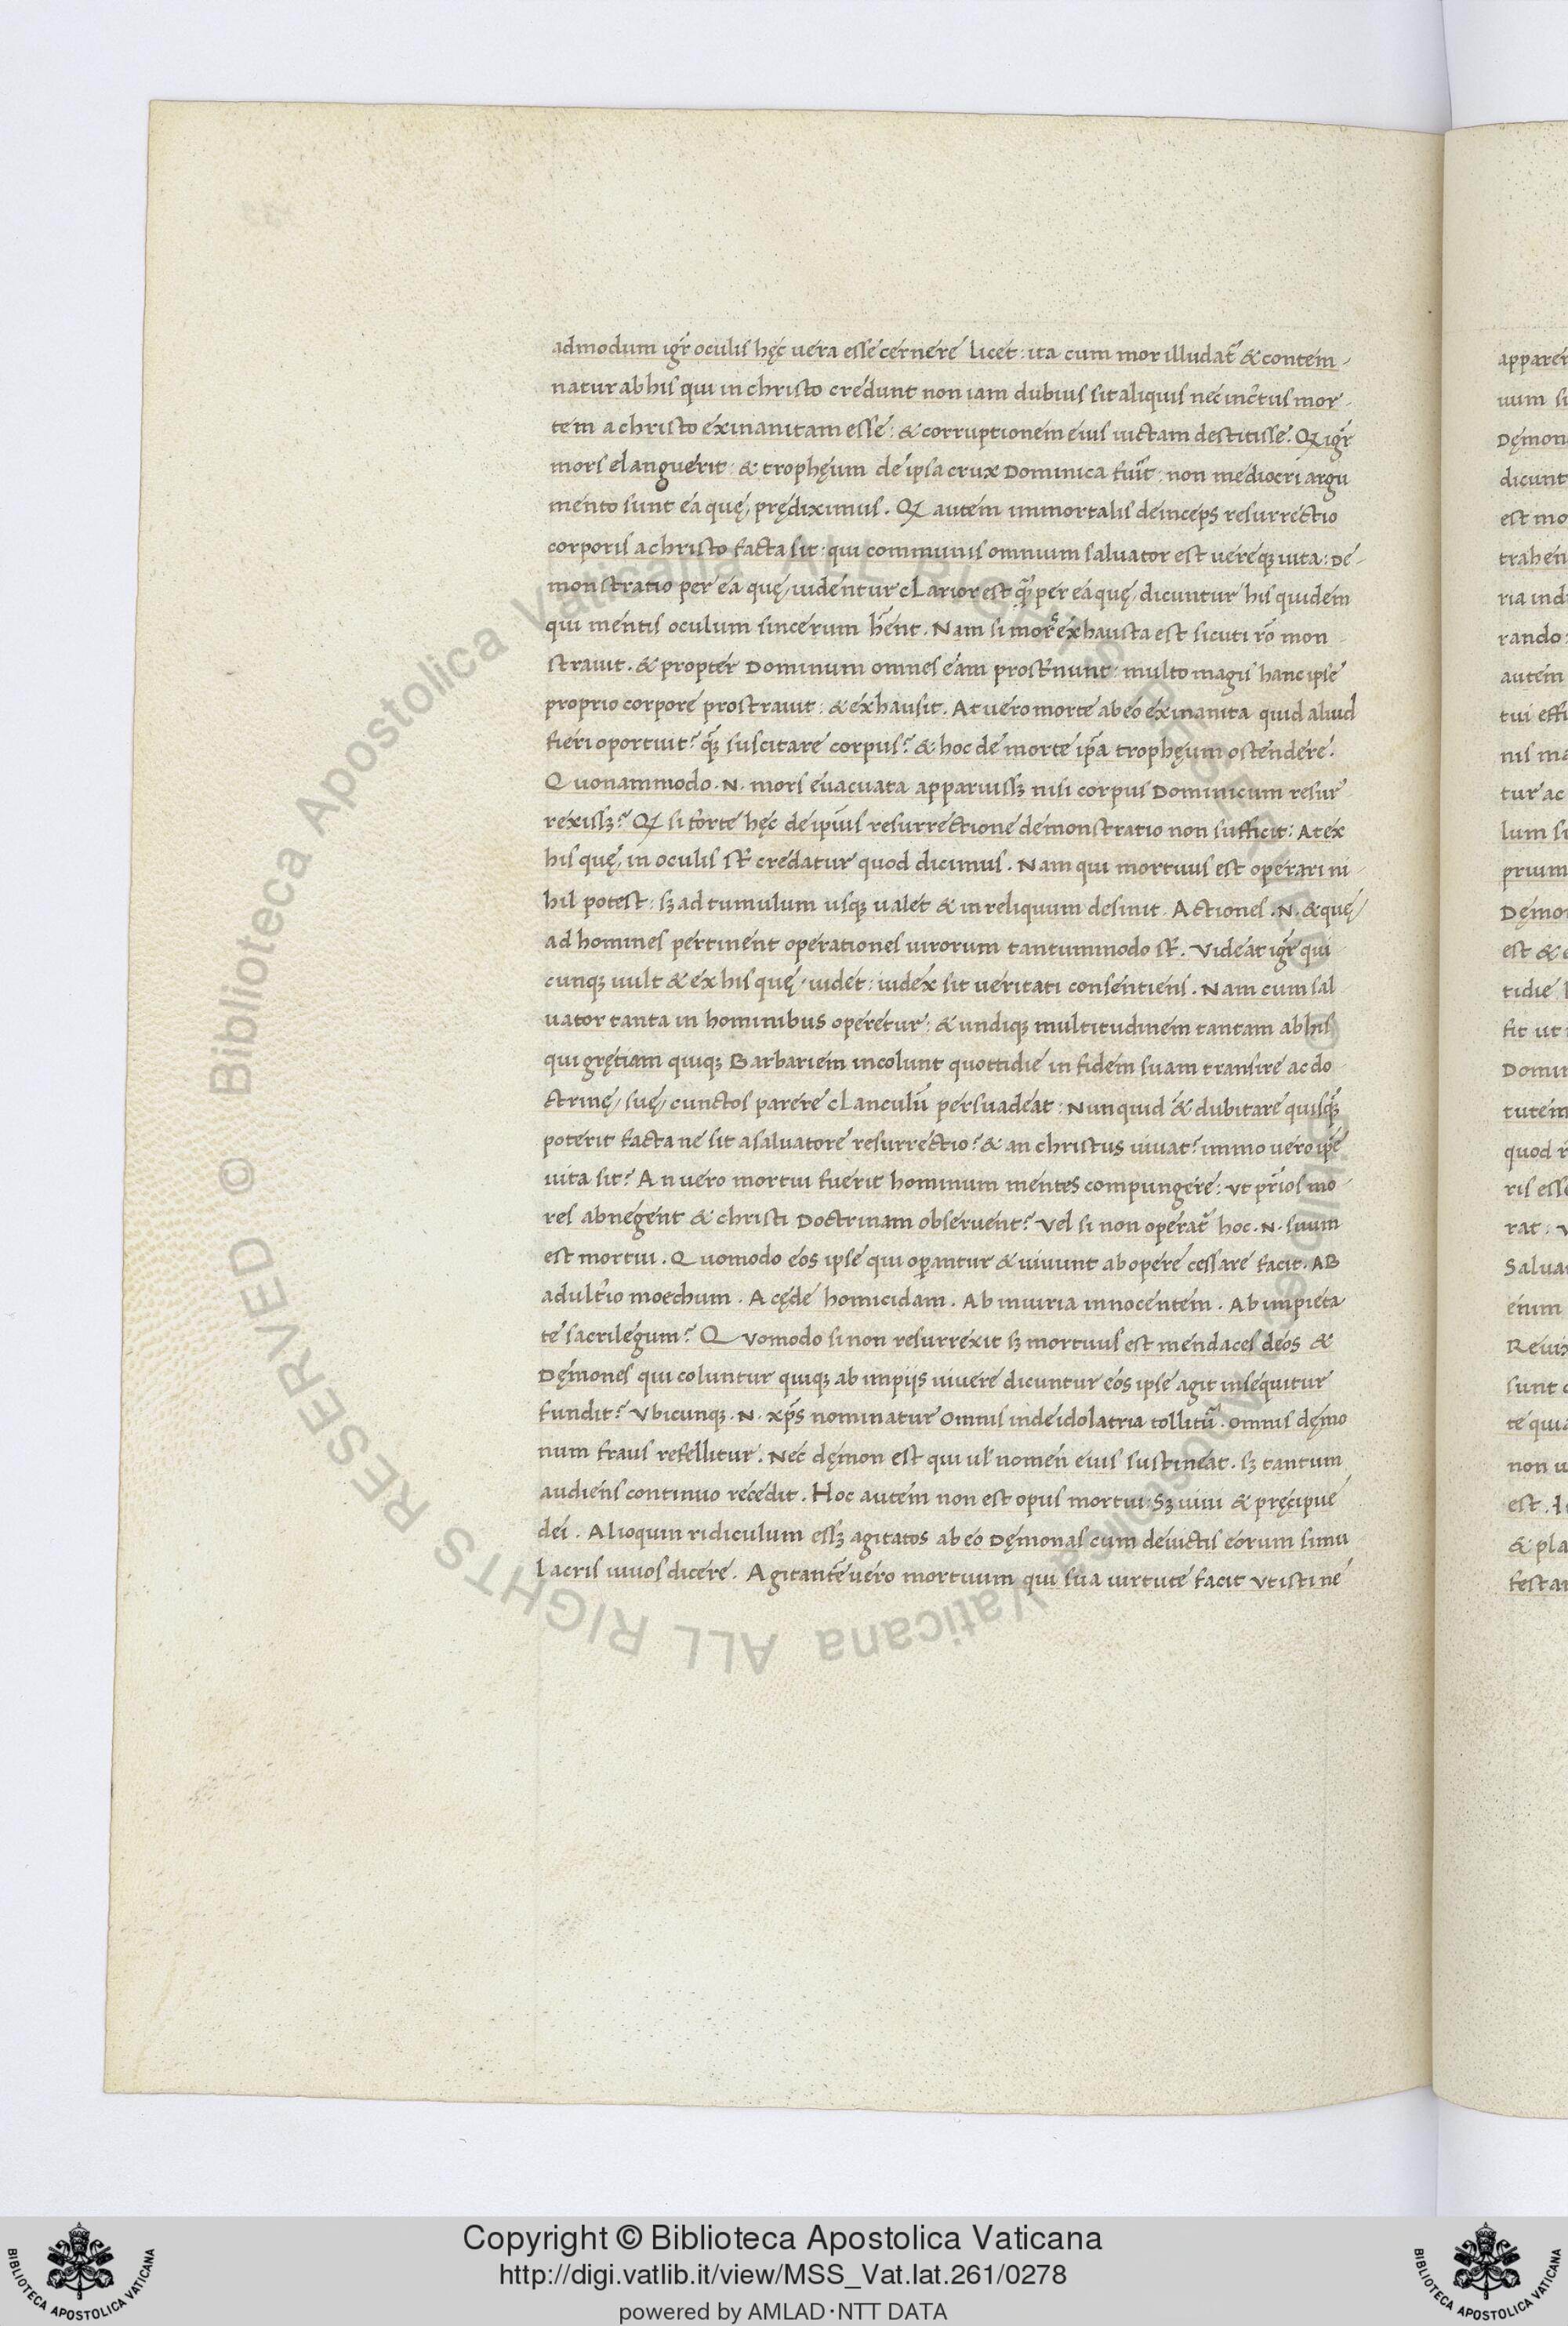 admodum igr̄ oculis hęc uera esse cernere licet: ita cum mor illudat᷑ & contem-
natur ab his qui in christo credunt non iam dubius sit aliquis nec incertus mor
tem a christo exinanitam esse: & corruptionem eius uictam destitisse. Qꝫ igr̄
mors elanguerit: & trophęum de ipsa crux Dominica fuit: non mediocri argu
mento sunt ea quę prędiximus. Qꝫ autem immortalis deinceps resurrectio
corporis a christo facta sit: qui communis omnium saluator est uereqꝫ uita: De-
monstratio per ea quę uidentur clarior est q̄ per ea quę dicuntur his quidem
qui mentis oculum sincerum hn̄t. Nam si mors exhausta est sicuti rō mon
strauit. & propter Dominum omnes eam prosternunt: multo magis hanc ipse
proprio corpore prostrauit: & exhausit. At uero morte ab eo exinanita quid aliud
fieri oportuit? qꝫ suscitare corpus? & hoc de morte ip̄a trophęum ostendere?
Quonammodo .N. mors euacuata apparuissꝫ nisi corpus Dominicum resur
rexissꝫ? Qꝫ si forte hęc de ipsius resurrectione demonstratio non sufficit: At ex
his quę in oculis st̄ credatur quod dicimus. Nam qui mortuus est operari ni
hil potest: sꝫ ad tumulum usqꝫ ualet & in reliquum desinit. Actiones .N. & quę
ad homines pertinent operationes uirorum tantummodo st̄. Videat igr̄ qui
cunqꝫ uult & ex his quę uidet: iudex sit ueritati consentiens. Nam cum sal
uator tanta in hominibus operetur: & undiqꝫ multitudinem tantam ab his
qui gretiam quiqꝫ Barbariem incolunt quottidie in fidem suam transire ac do
ctrinę suę cunctos parere clanculū persuadeat: Nunquid & dubitare quisqꝫ
poterit facta ne sit a saluatore resurrectio? & an christus uiuat? immo uero ip̄e
uita sit? An uero mortui fuerit hominum mentes compungere: ut pr̄ios mo
res abnegent & christi Doctrinam obseruent? Vel si non operat᷑ hoc .N. suum
est mortui. Quomodo eos ipse qui operantur & uiuunt ab opere cessare facit. AB
adulterio moechum. A cęde homicidam. Ab iniuria innocentem. Ab impieta
te sacrilegum? Quomodo si non resurrexit sꝫ mortuus est mendaces deos &
Dęmones qui coluntur quiqꝫ ab impijs uiuere dicuntur eos ipse agit insequitur
fundit? Vbicunqꝫ .N. xp̄s nominatur omnis inde idolatria tollitur. omnis dęmo
num fraus refellitur. Nec dęmon est qui ul̄ nomen eius sustineat. sꝫ tantum
audiens continuo recedit. Hoc autem non est opus mortui Sꝫ uiui & pręcipue
dei. Alioquin ridiculum essꝫ agitatos ab eo Dęmonas cum deiuctis eorum simu
lacris uiuos dicere. Agitante uero mortuum qui sua uirtute facit ut isti ne
apparen
uum si
Dęmon
dicunt
est mo
trahen
ria ind
rando:
autem
tui effi
nis ma
tur ac
lum si
prium
Dęmo
est & e
tidie
fit ut
Domi
tutem
quod r
ris esse
rat: V
Salua
enim
Reui
sunt
te quia
non u
est.
& pla
festa
© Biblioteca Apostolica Vaticana ALL RIGHTS RESERVED © Biblioteca Apostolica Vaticana ALL RIGHTS RESERVED
Copyright © Biblioteca Apostolica Vaticana
http://digi.vatlib.it/view/MSS_Vat.lat.261/0278
powered by AMLAD·NTT DATA
BIBLIOTECA APOSTOLICA VATICANA
BIBLIOTECA APOSTOLICA VATICANA